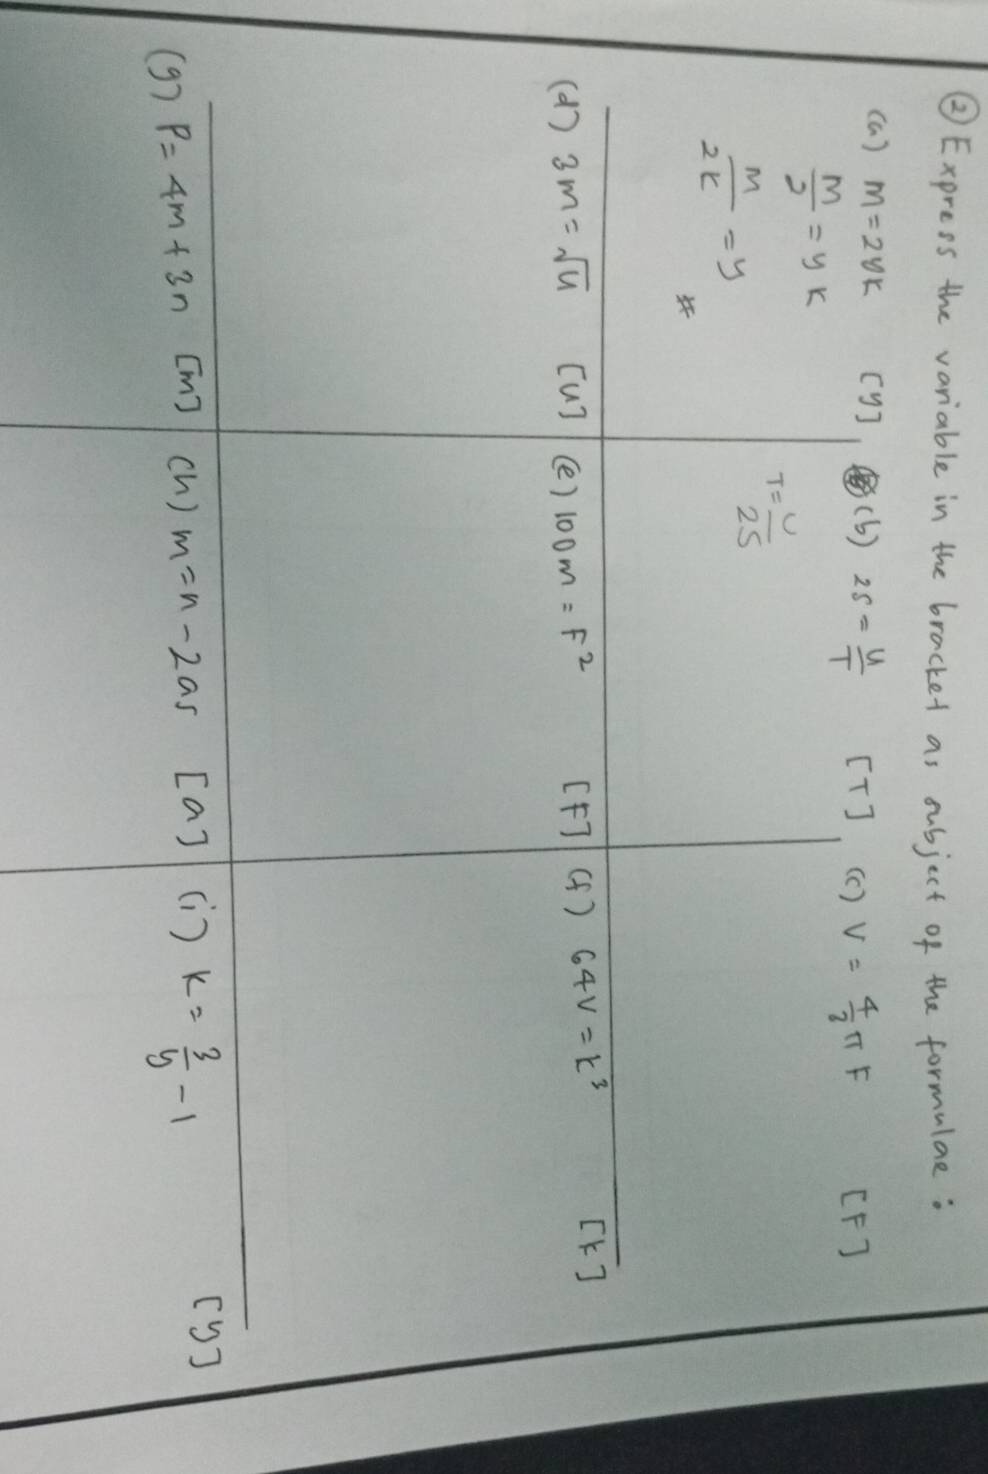 ② Express the variable in the bracket as subject of the formulae :
(a) m = 2yk [y]
m/2 = y k
m/2k = y
#
(b) 2s = u/T [T]
T = U/2S
(c) V = 4/3 π F [F]
(d) 3m = √u [u]
(e) 100m = F² [F]
(f) 64v = k³ [k]
(g) P = 4m + 3n [m]
(h) m = n - 2as [a]
(i) k = 3/y - 1 [y]